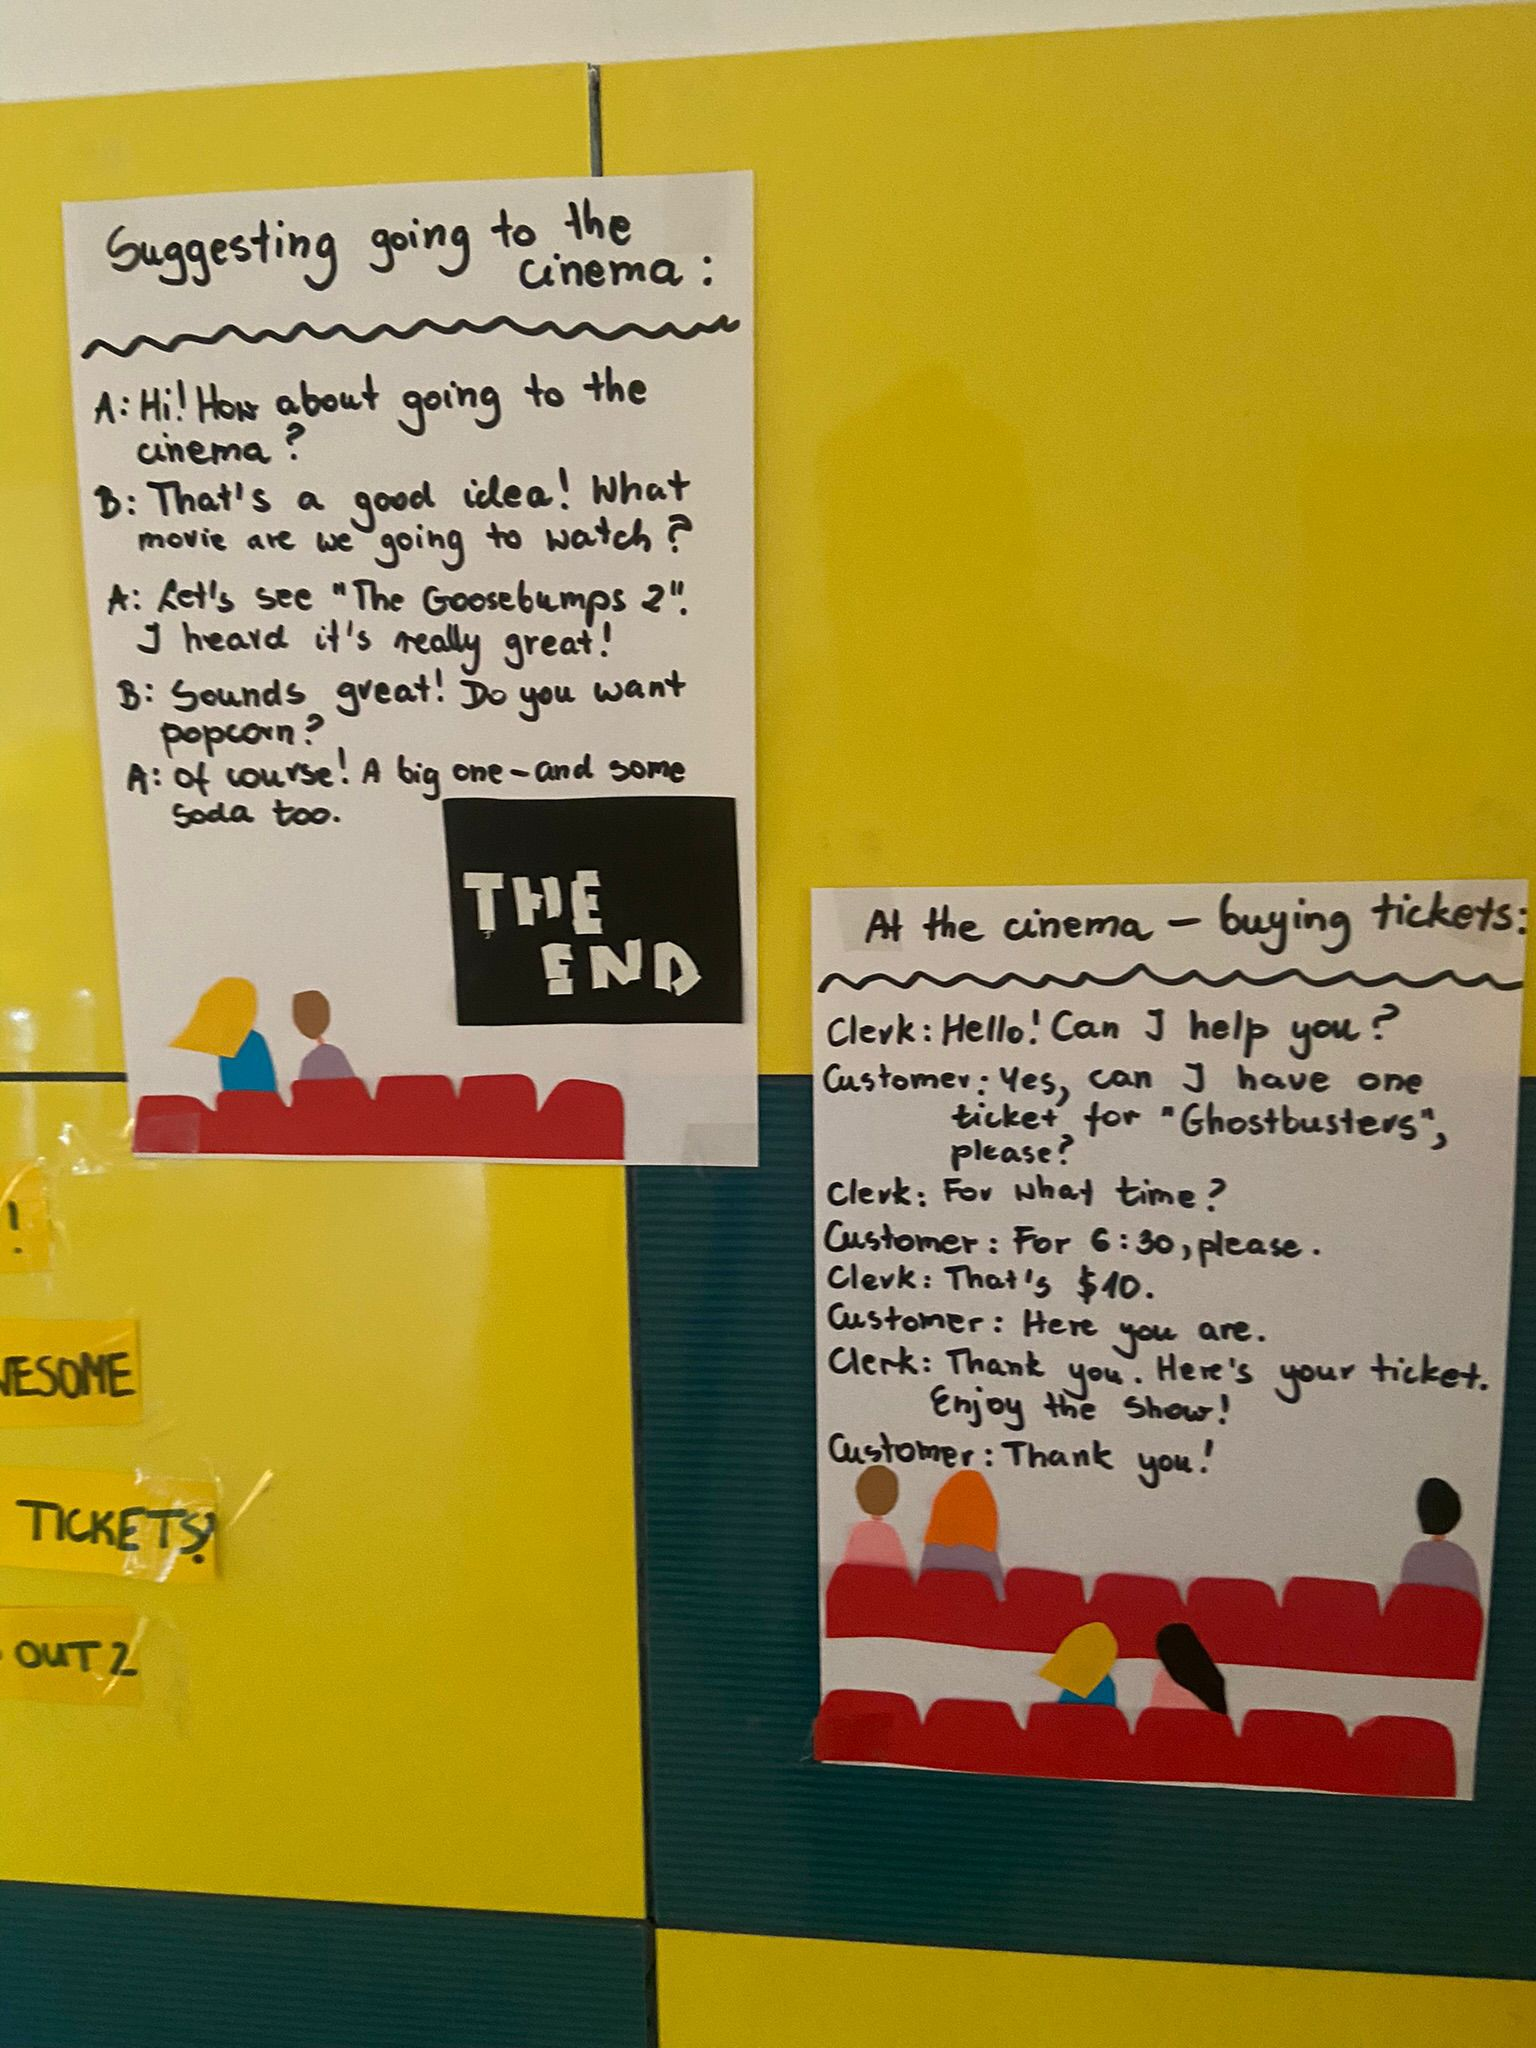 Suggesting going to the
cinema:
A: Hi! How about going to the
cinema?
B: That's a good idea! What
movie are we going to watch?
A: Let's see "The Goosebumps 2".
I heard it's really great!
B: Sounds great! Do you want
popcorn?
A: Of course! A big one - and some
soda too.
THE
END
At the cinema - buying tickets:
Clerk: Hello! Can I help you?
Customer: Yes, can I have one
ticket for "Ghostbusters",
please?
Clerk: For what time?
Customer: For 6:30, please.
Clerk: That's $10.
Customer: Here you are.
Clerk: Thank you. Here's your ticket.
Enjoy the show!
Customer: Thank you!
!
TICKETS?
OUT 2